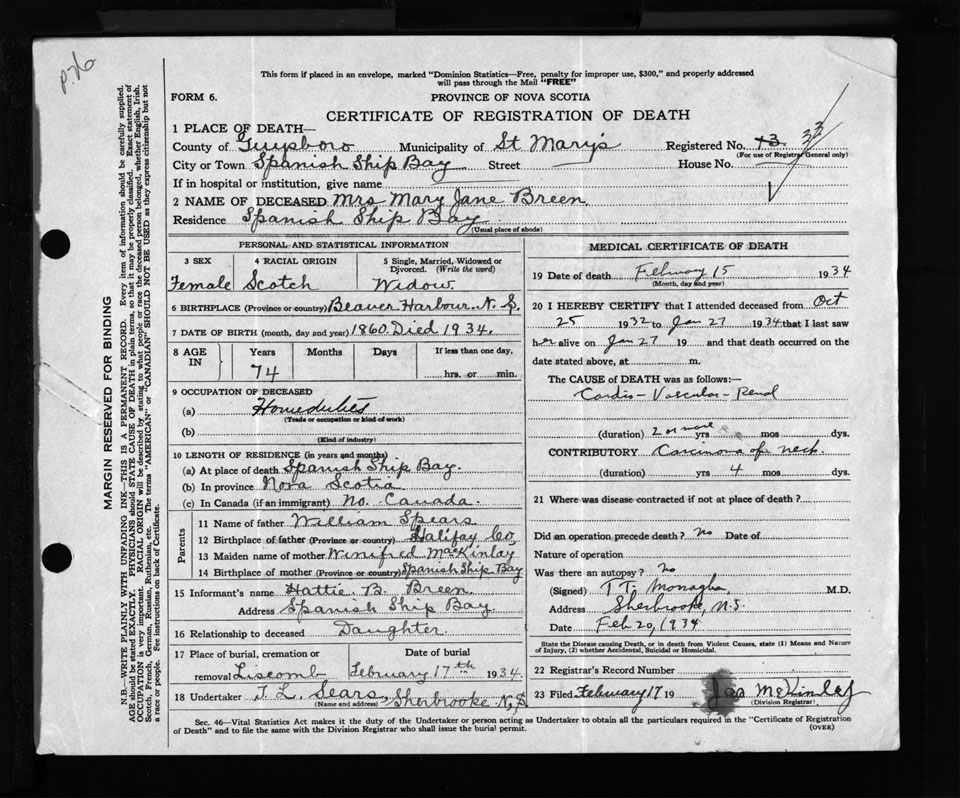 p. 76
This form if placed in an envelope, marked "Dominion Statistics—Free, penalty for improper use, $300," and properly addressed
will pass through the Mail "FREE"
FORM 6.
PROVINCE OF NOVA SCOTIA
CERTIFICATE OF REGISTRATION OF DEATH
1 PLACE OF DEATH—
County of Guysboro Municipality of St Mary's Registered No. 13 33
(For use of Registrar General only)
City or Town Spanish Ship Bay Street House No.
If in hospital or institution, give name
2 NAME OF DECEASED Mrs Mary Jane Breen
Residence Spanish Ship Bay
(Usual place of abode)
PERSONAL AND STATISTICAL INFORMATION
3 SEX 4 RACIAL ORIGIN 5 Single, Married, Widowed or Divorced. (Write the word)
Female Scotch Widow
6 BIRTHPLACE (Province or country) Beaver Harbour N. S.
7 DATE OF BIRTH (month, day and year) 1860 Died 1934.
8 AGE IN Years Months Days If less than one day,
74 hrs. or min.
9 OCCUPATION OF DECEASED
(a) Homeduties
(Trade or occupation or kind of work)
(b)
(Kind of industry)
10 LENGTH OF RESIDENCE (in years and months)
(a) At place of death Spanish Ship Bay.
(b) In province Nova Scotia
(c) In Canada (if an immigrant) No. Canada.
Parents
11 Name of father William Spears
12 Birthplace of father (Province or country) Halifax Co,
13 Maiden name of mother Winifred MacKinlay
14 Birthplace of mother (Province or country) Spanish Ship Bay
15 Informant's name Hattie. B. Breen
Address Spanish Ship Bay.
16 Relationship to deceased Daughter.
17 Place of burial, cremation or removal Liscomb
Date of burial February 17th 1934.
18 Undertaker J. L. Sears, Sherbrooke N,S
(Name and address)
MEDICAL CERTIFICATE OF DEATH
19 Date of death February 15 1934
(Month, day and year)
20 I HEREBY CERTIFY that I attended deceased from Oct
25 1932 to Jan 27 1934 that I last saw
her alive on Jan 27 19 and that death occurred on the
date stated above, at m.
The CAUSE of DEATH was as follows:—
Cardio-Vascular-Renal
(duration) 2 or more yrs mos dys.
CONTRIBUTORY Carcinoma of neck.
(duration) yrs 4 mos. dys.
21 Where was disease contracted if not at place of death?
Did an operation precede death? No Date of
Nature of operation
Was there an autopsy? No
(Signed) T. T. Monaghan M.D.
Address Sherbrooke, N.S.
Date Feb 20, 1934
State the Disease causing Death, or in death from Violent Causes, state (1) Means and Nature
of Injury, (2) whether Accidental, Suicidal or Homicidal.
22 Registrar's Record Number
23 Filed February 17 19 Jas McKinlay
(Division Registrar)
Sec. 46—Vital Statistics Act makes it the duty of the Undertaker or person acting as Undertaker to obtain all the particulars required in the "Certificate of Registration
of Death" and to file the same with the Division Registrar who shall issue the burial permit.
(OVER)
MARGIN RESERVED FOR BINDING
N.B.—WRITE PLAINLY WITH UNFADING INK—THIS IS A PERMANENT RECORD. Every item of information should be carefully supplied.
AGE should be stated EXACTLY. PHYSICIANS should STATE CAUSE OF DEATH in plain terms, so that it may be properly classified. Exact statement of
OCCUPATION is very important. RACIAL ORIGIN will be described by stating to what people or race the deceased person belonged, whether English, Irish,
Scotch, French, German, Russian, Ruthenian, etc. The terms "AMERICAN" or "CANADIAN" SHOULD NOT BE USED as they express citizenship but not
a race or people. See instructions on back of Certificate.